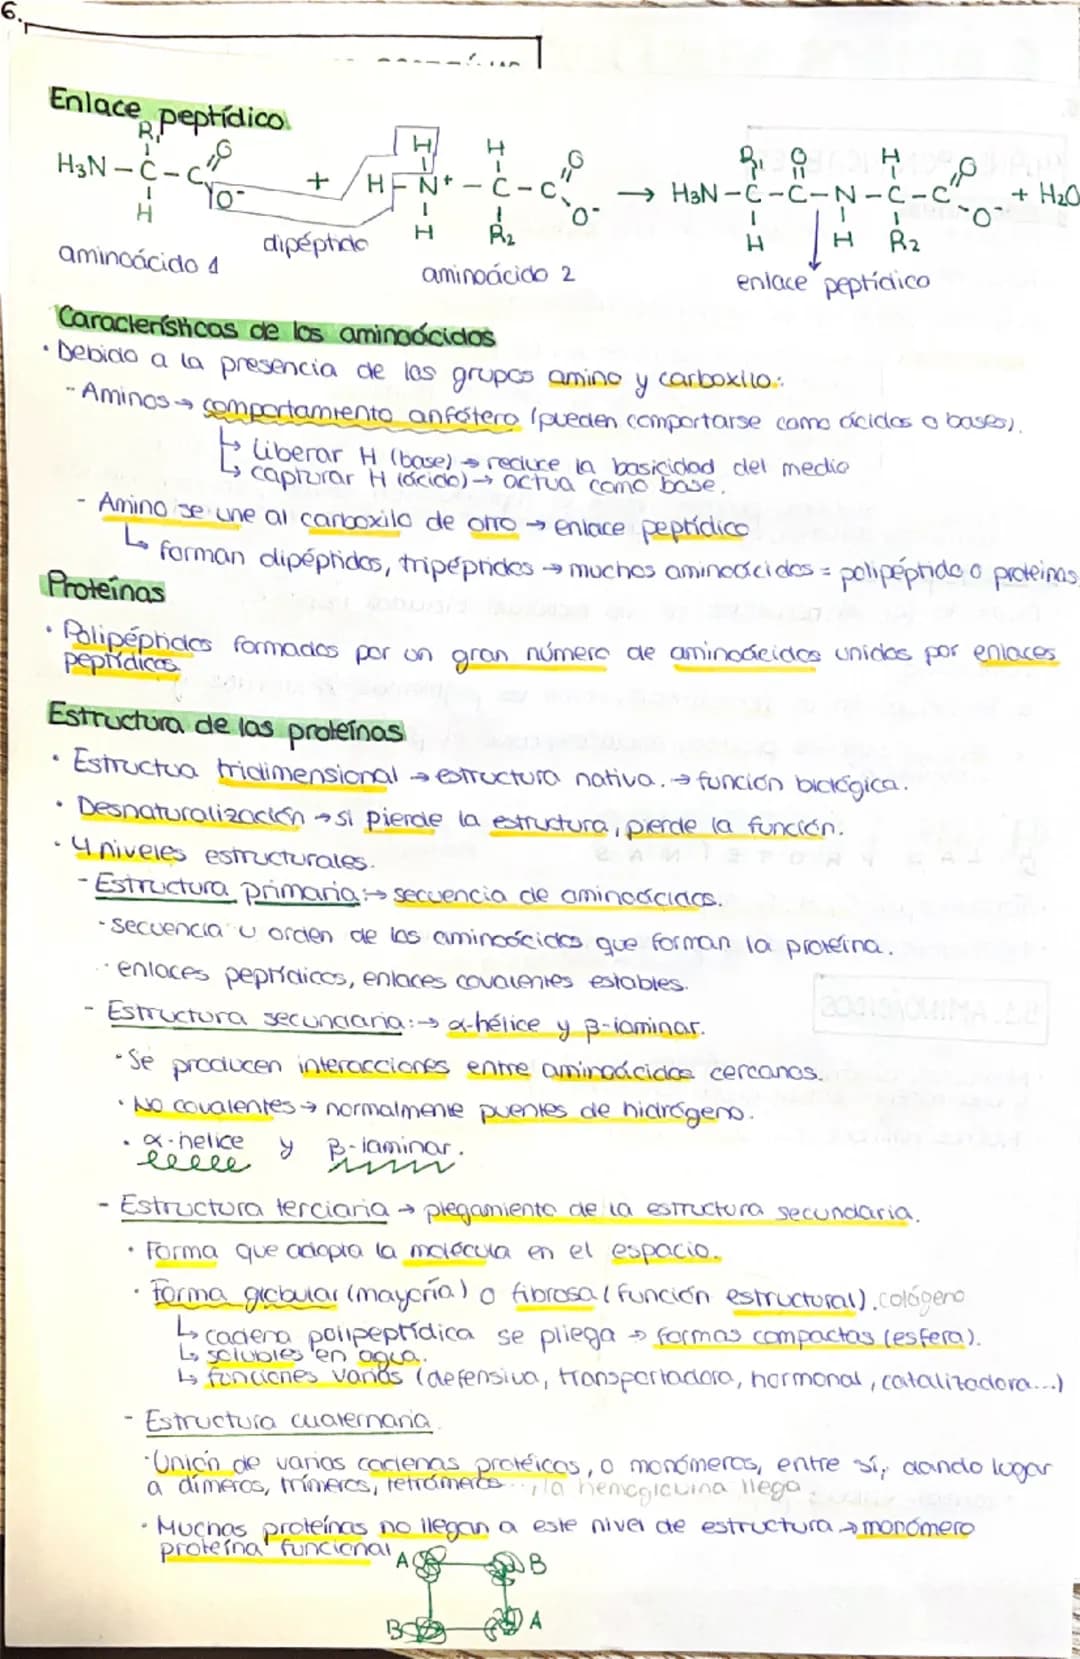 6.
Enlace peptídico
R₁ O H H O R₁ O H O
H₃N-C-C + H-N⁺-C-C → H₃N-C-C-N-C-C + H₂O
O⁻ O⁻ O⁻
H H R₂ H H R₂
dipéptido
aminoácido 1 aminoácido 2 enlace peptídico
Características de los aminoácidos
· Debido a la presencia de los grupos amino y carboxilo:
- Aminos → comportamiento anfótero (pueden comportarse como ácidos o bases).
↳ liberar H (base) → reduce la basicidad del medio
↳ capturar H (ácido) → actua como base.
- Amino se une al carboxilo de otro → enlace peptídico
↳ forman dipéptidos, tripéptidos → muchos aminoácidos = polipéptido o proteinas
Proteínas
· Polipéptidos formados por un gran número de aminoácidos unidos por enlaces
peptídicos.
Estructura de las proteínas
· Estructua tridimensional → estructura nativa. → función biológica.
· Desnaturalización → si pierde la estructura, pierde la función.
· 4 niveles estructurales.
- Estructura primaria: → secuencia de aminoácidos.
· secuencia u orden de los aminoácidos que forman la proteína.
· enlaces peptídicos, enlaces covalentes estables.
- Estructura secundaria: → α-hélice y β-laminar.
· Se producen interacciones entre aminoácidos cercanos.
· No covalentes → normalmente puentes de hidrógeno.
· α-helice y β-laminar.
- Estructura terciaria → plegamiento de la estructura secundaria.
· Forma que adopta la molécula en el espacio.
· Forma globular (mayoría) o fibrosa (función estructural). colágeno
↳ cadena polipeptídica se pliega → formas compactas (esfera).
↳ solubles en agua.
↳ funciones varias (defensiva, transportadora, hormonal, catalizadora...)
- Estructura cuaternaria.
· Unión de varias cadenas protéicas, o monómeros, entre sí, dando lugar
a dímeros, trímeros, tetrámeros..., la hemoglobina llega
· Muchas proteínas no llegan a este nivel de estructura → monómero
proteína funcional
A B
B A